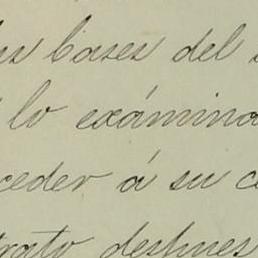 bases del
lo exámina
ceder á su c
trato despues